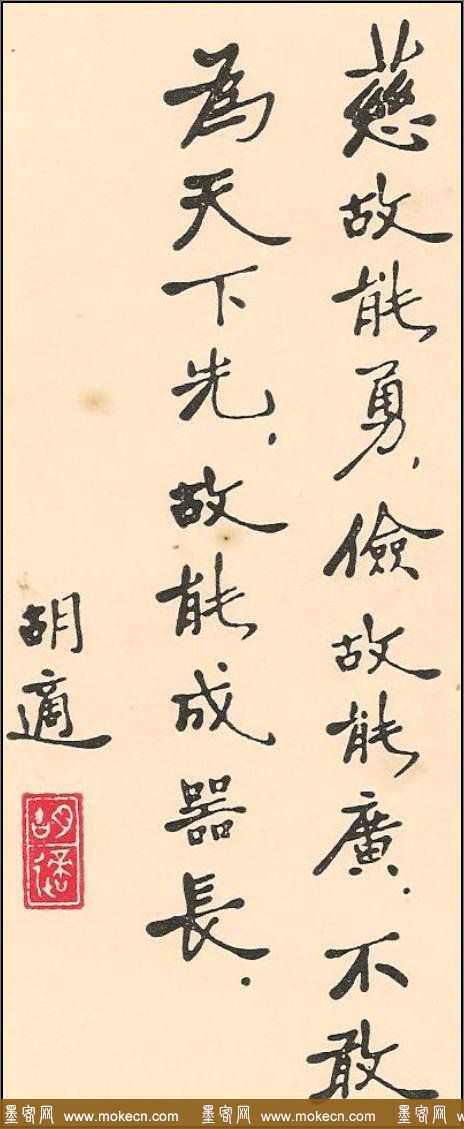 慈故能勇，儉故能廣．不敢
為天下先，故能成器長．
胡適
胡適
墨客网 www.mokecn.com 墨客网 www.mokecn.com 墨客网 w